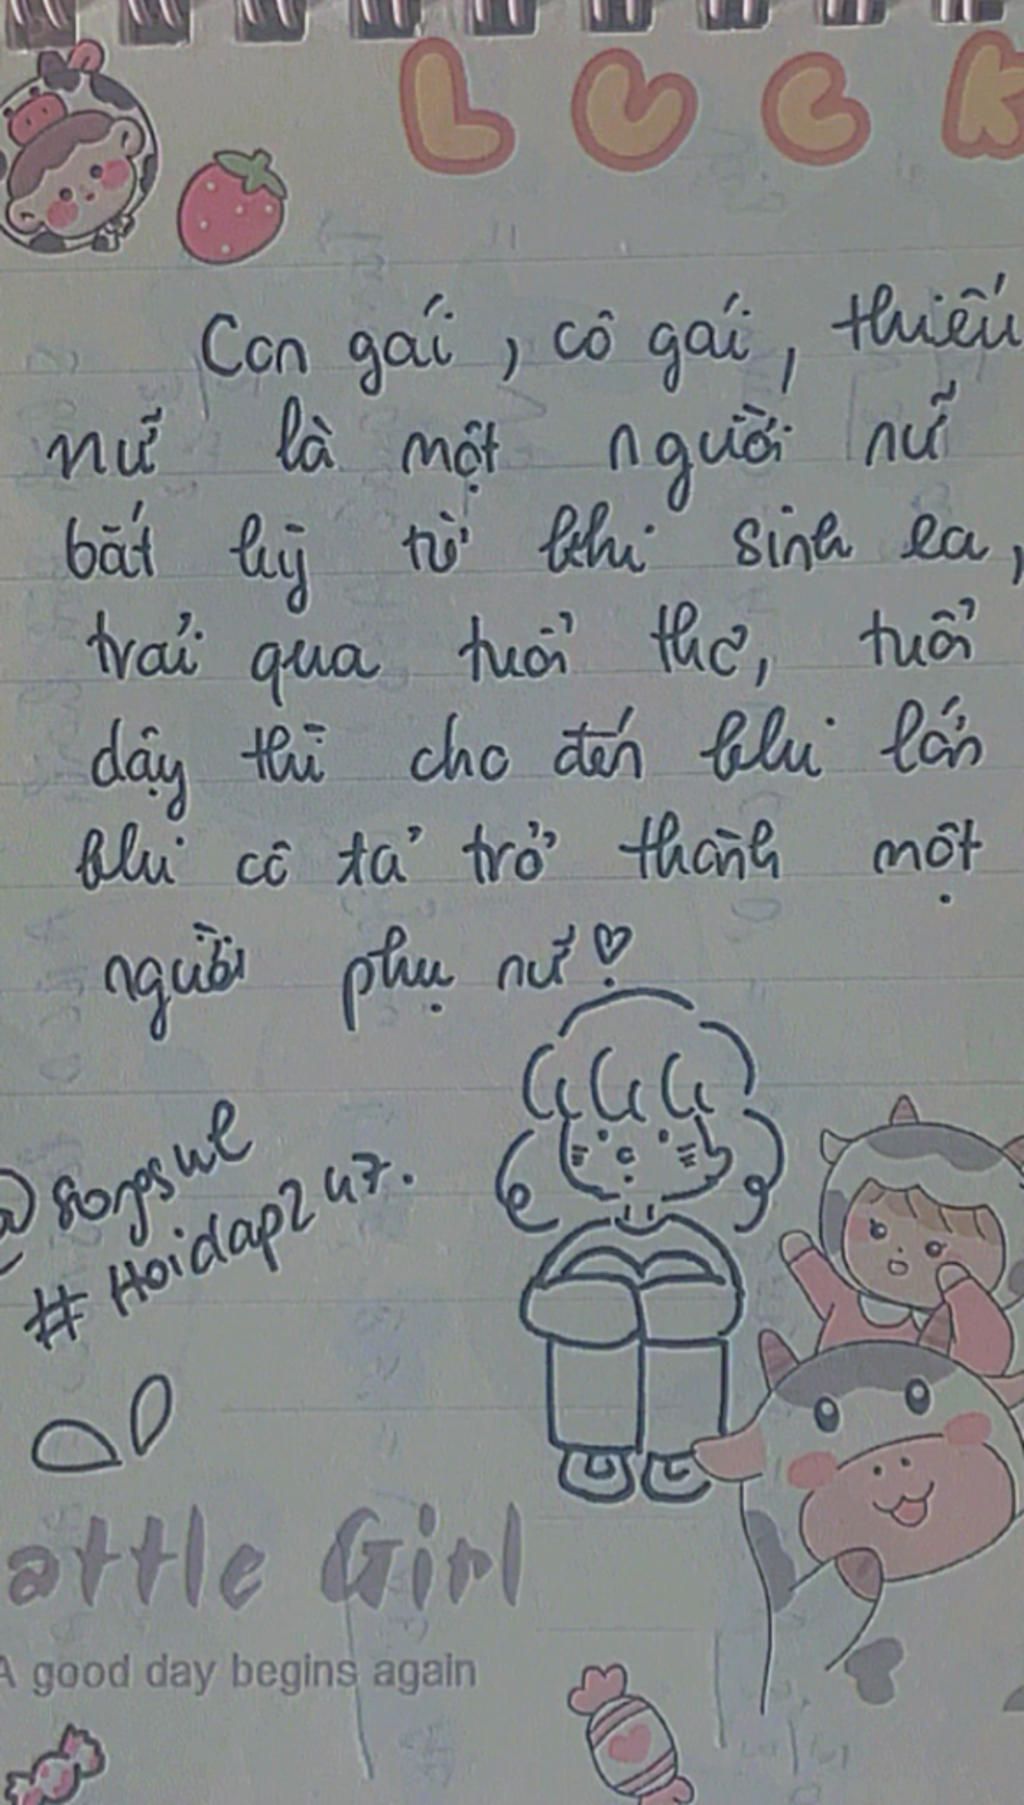 LUCK
Con gái, cô gái, thiếu
nữ là một người nữ
bất kỳ từ khi sinh ra,
trải qua tuổi thơ, tuổi
dậy thì cho đến khi lớn
khi cô ta trở thành một
người phụ nữ
#Hoidap247.
attle Girl
A good day begins again